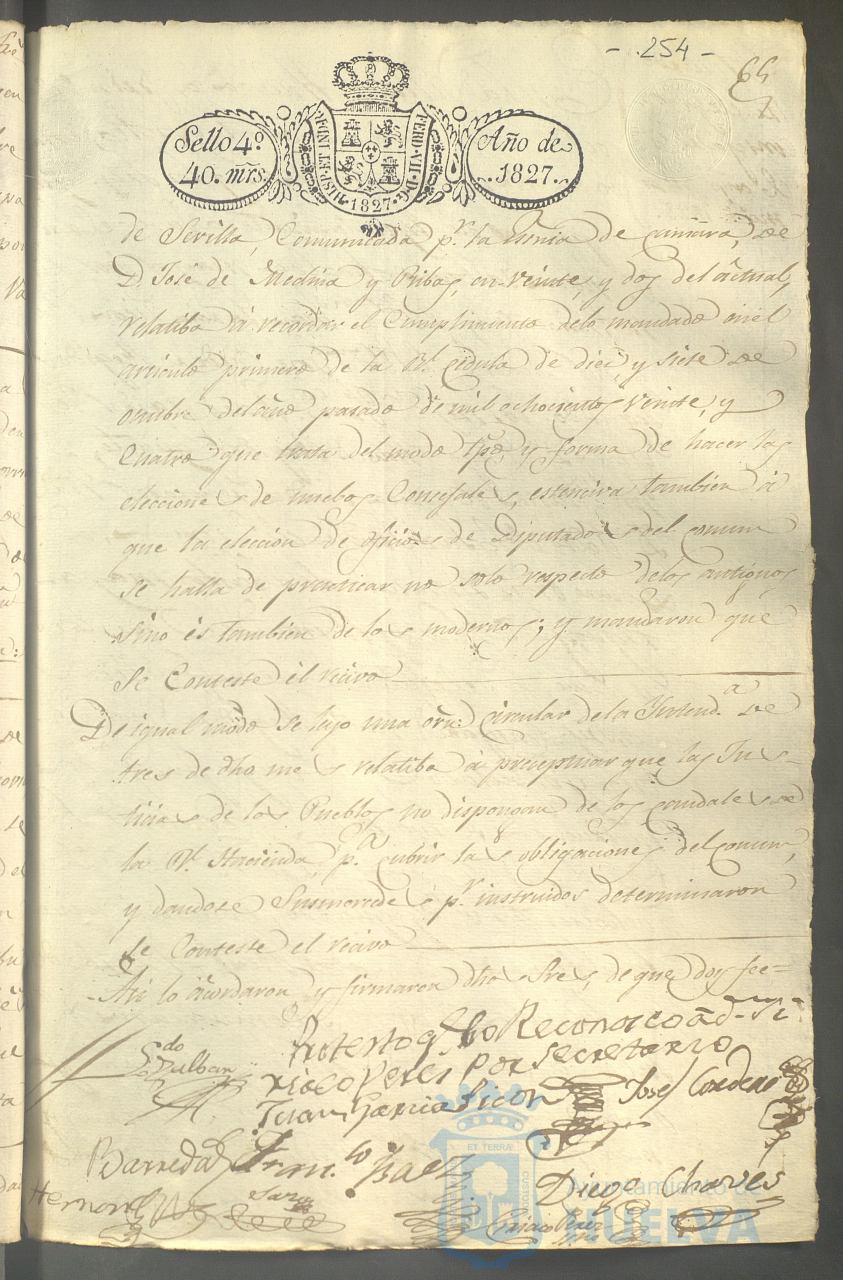 - 254 -
65
Sello 4º.
40. mrs.
HISP. ET IND. R. FERD. VII. D. G.
· 1827 ·
Año de
1827.
de Sevilla, Comunicada pr. la de Camara, de
D. José de Medina y Ribas, en veinte, y dos del actual,
relatiba á recordar el Cumplimiento delo mandado en el
articulo primero de la Rl. Cedula de diez, y siete de
del año pasado de mil ochocientos veinte, y
Cuatro que trata del modo tpo, y forma de hacer las
elecciones de nuebos Consejales, estenciva tambien á
que la eleccion de oficios de Diputados del comun
se halla de practicar no solo respecto delos antiguos
sino és tambien de los modernos; y mandaron que
Se Conteste el recivo
De igual modo se leyo una orn: circular de la Intend.a de
tres de dho mes relatiba á preceptuar que las Jus-
ticias de los Pueblos no dispongan de los caudales de
la Rl. Hacienda, p.a cubrir las obligaciones del comun,
y dandose Susmercedes pr. instruidos determinaron
se Conteste el recivo
Asi lo acordaron y firmaron dhos Sres, de que doy fee=
Protesto q. no Reconosco á dn. Ci
riaco Perez por Secretario
Juan Garcia Picon José Cordero
Barreda Fran.co Baez
Diego Chaves
Hernandez
Ciriaco Perez
ET TERRÆ
Ayuntamiento de
HUELVA